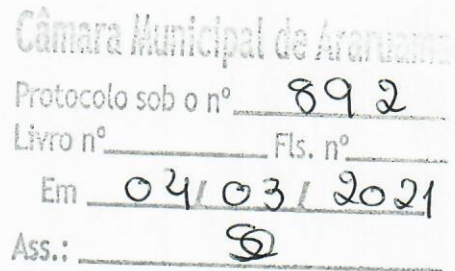 Câmara Municipal de Araruama
Protocolo sob o nº 892
Livro nº Fls. nº
Em 04/03/2021
Ass.: